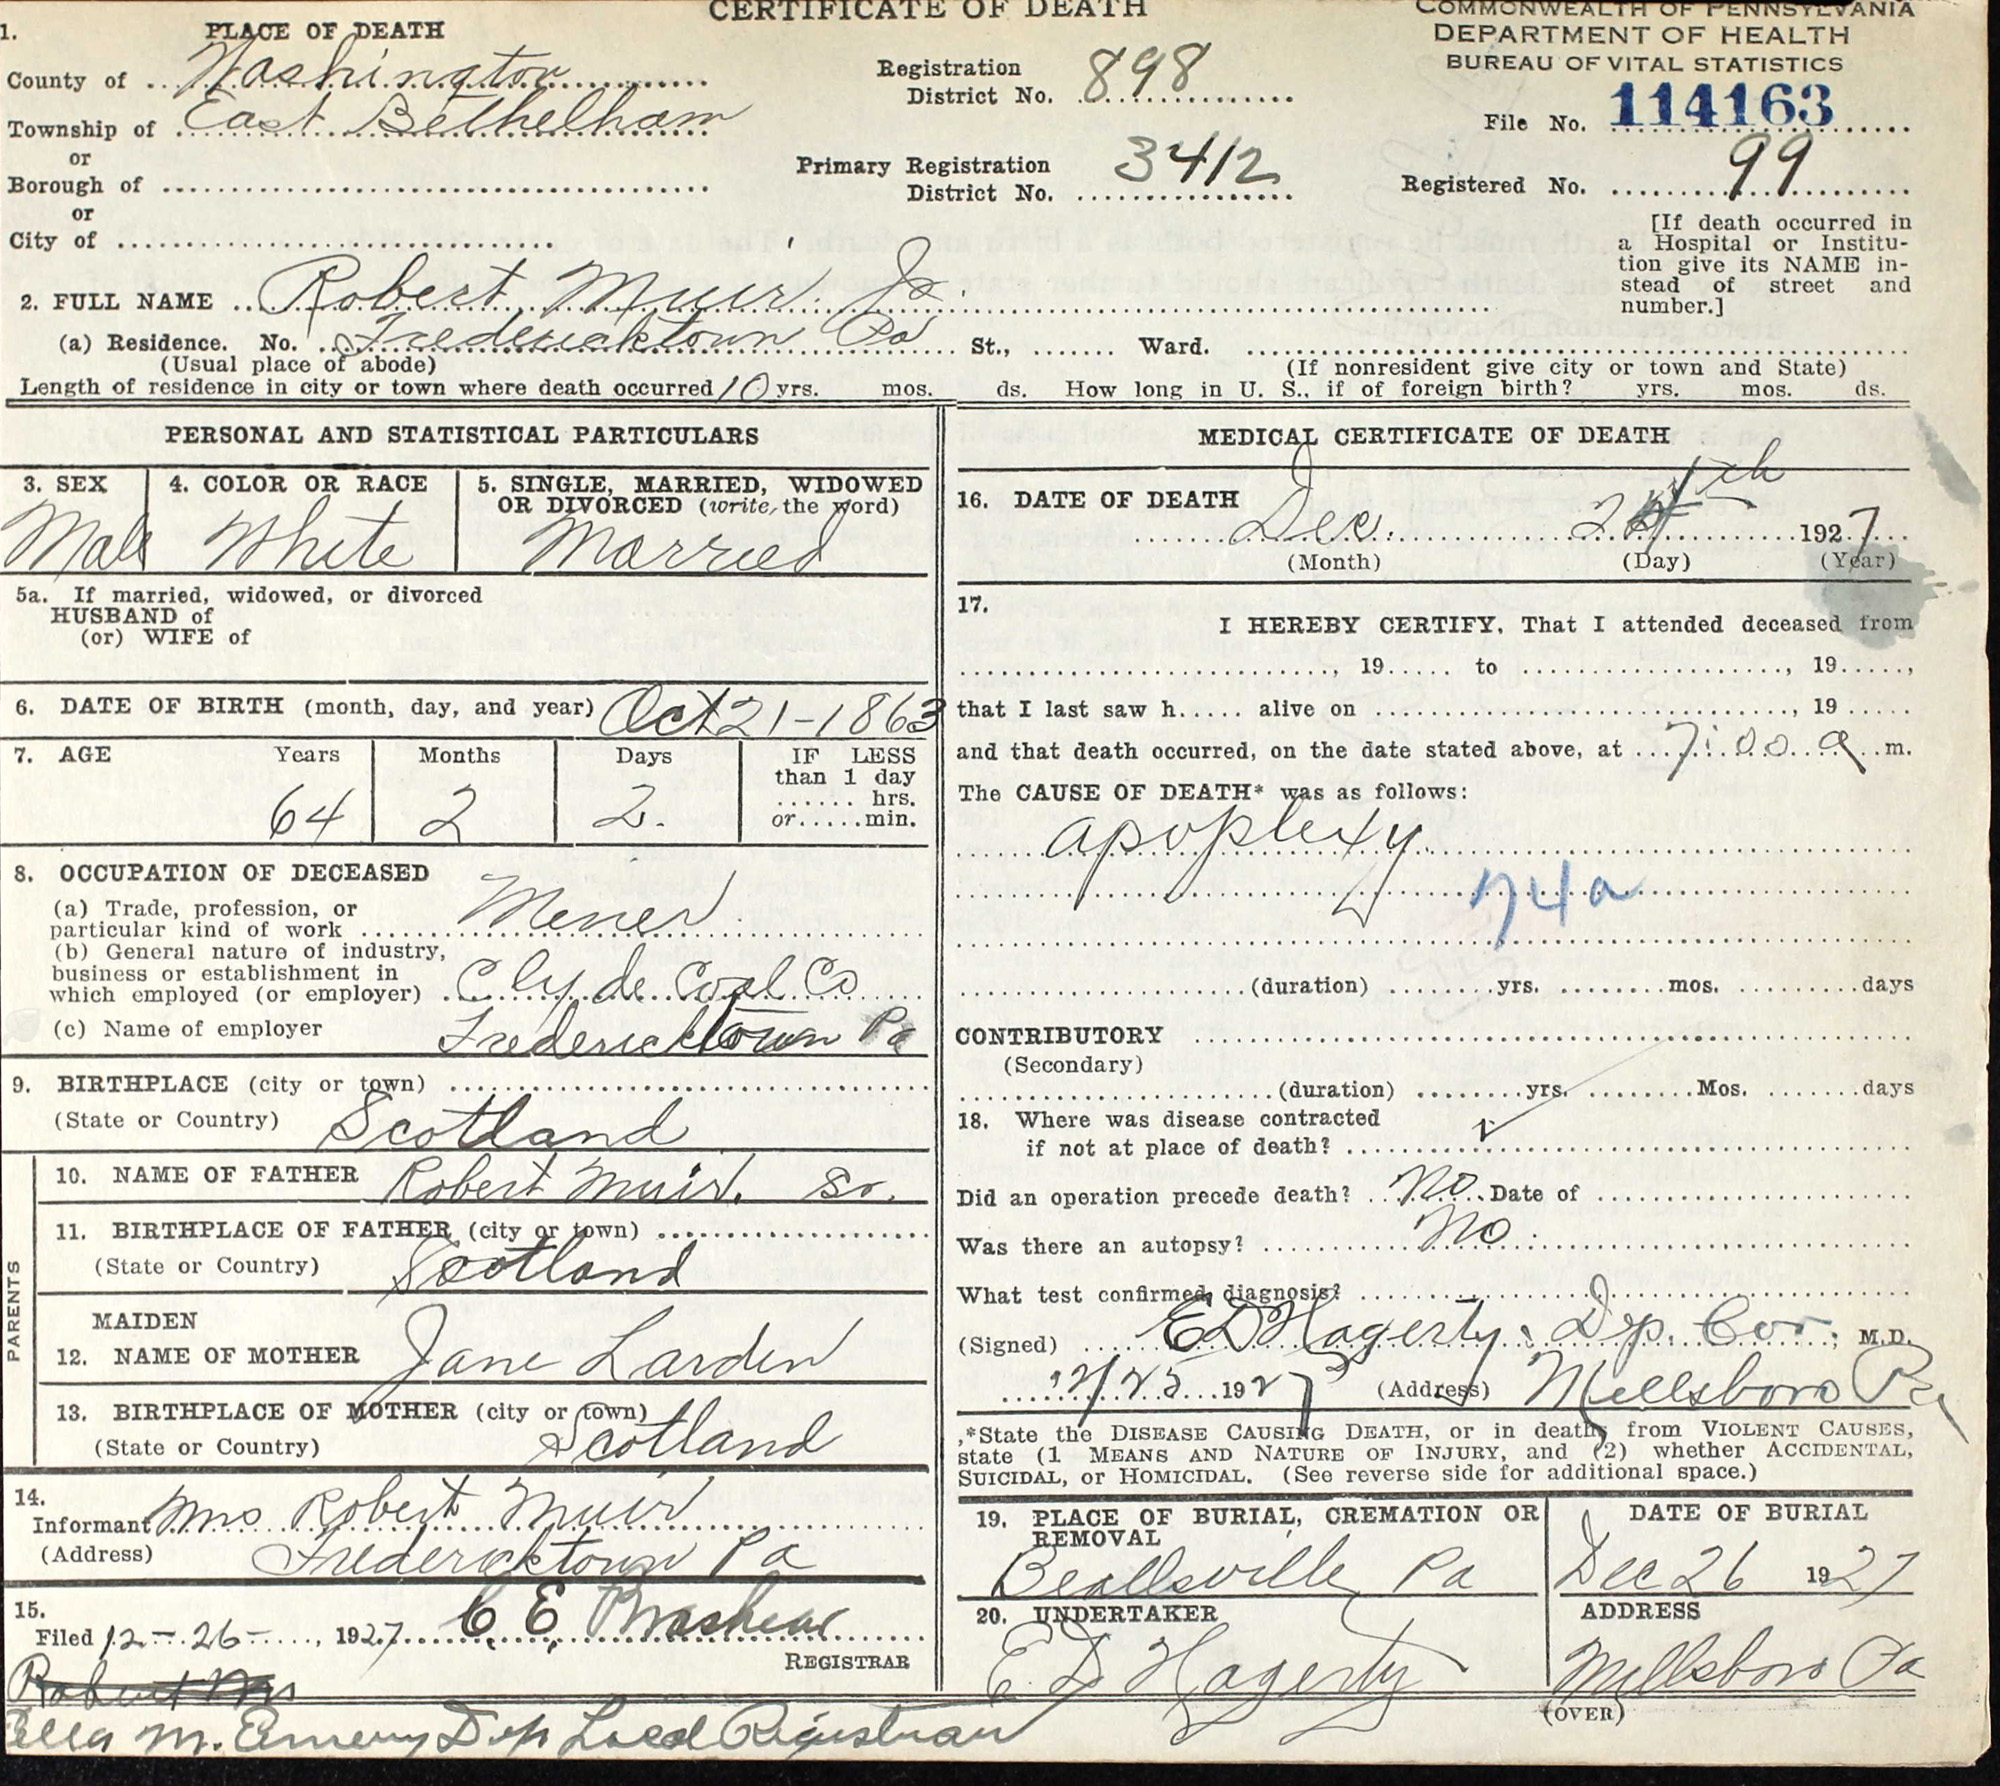 CERTIFICATE OF DEATH
COMMONWEALTH OF PENNSYLVANIA
DEPARTMENT OF HEALTH
BUREAU OF VITAL STATISTICS
1. PLACE OF DEATH
County of Washington
Township of East Bethelham
or
Borough of
or
City of
Registration District No. 898
Primary Registration District No. 3412
File No. 114163
Registered No. 99
[If death occurred in
a Hospital or Institu-
tion give its NAME in-
stead of street and
number.]
2. FULL NAME Robert Muir Jr.
(a) Residence. No. Fredericktown Pa St., Ward.
(Usual place of abode) (If nonresident give city or town and State)
Length of residence in city or town where death occurred 10 yrs. mos. ds. How long in U. S., if of foreign birth? yrs. mos. ds.
PERSONAL AND STATISTICAL PARTICULARS
3. SEX 4. COLOR OR RACE 5. SINGLE, MARRIED, WIDOWED
OR DIVORCED (write the word)
Male White Married
5a. If married, widowed, or divorced
HUSBAND of
(or) WIFE of
6. DATE OF BIRTH (month, day, and year) Oct 21-1863
7. AGE Years Months Days IF LESS
than 1 day
hrs.
or min.
64 2 2.
8. OCCUPATION OF DECEASED
(a) Trade, profession, or
particular kind of work Mener
(b) General nature of industry,
business or establishment in
which employed (or employer) Clyde Coal Co
(c) Name of employer Fredericktown Pa
9. BIRTHPLACE (city or town)
(State or Country) Scotland
PARENTS
10. NAME OF FATHER Robert Muir. Sr.
11. BIRTHPLACE OF FATHER (city or town)
(State or Country) Scotland
MAIDEN
12. NAME OF MOTHER Jane Larden
13. BIRTHPLACE OF MOTHER (city or town)
(State or Country) Scotland
14.
Informant Mrs Robert Muir
(Address) Fredericktown Pa
15.
Filed 12-26-, 1927 C. E. Brashear
REGISTRAR
Robert
Ella M. Emery Dep Local Registrar
MEDICAL CERTIFICATE OF DEATH
16. DATE OF DEATH
Dec. 24th 1927
(Month) (Day) (Year)
17.
I HEREBY CERTIFY, That I attended deceased from
, 19 to , 19 ,
that I last saw h alive on , 19
and that death occurred, on the date stated above, at 7:00 a m.
The CAUSE OF DEATH* was as follows:
apoplexy
74a
(duration) yrs. mos. days
CONTRIBUTORY
(Secondary)
(duration) yrs. Mos. days
18. Where was disease contracted
if not at place of death?
Did an operation precede death? No Date of
Was there an autopsy? No
What test confirmed diagnosis?
(Signed) E D Hagerty. Dep. Cor., M.D.
12/25 1927 (Address) Millsboro Pa
*State the DISEASE CAUSING DEATH, or in deaths from VIOLENT CAUSES,
state (1 MEANS AND NATURE OF INJURY, and (2) whether ACCIDENTAL,
SUICIDAL, or HOMICIDAL. (See reverse side for additional space.)
19. PLACE OF BURIAL, CREMATION OR
REMOVAL
Beallsville Pa
DATE OF BURIAL
Dec 26 1927
20. UNDERTAKER
E D Hagerty
ADDRESS
Millsboro Pa
(OVER)